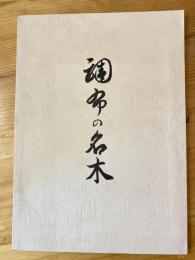 調布の名木